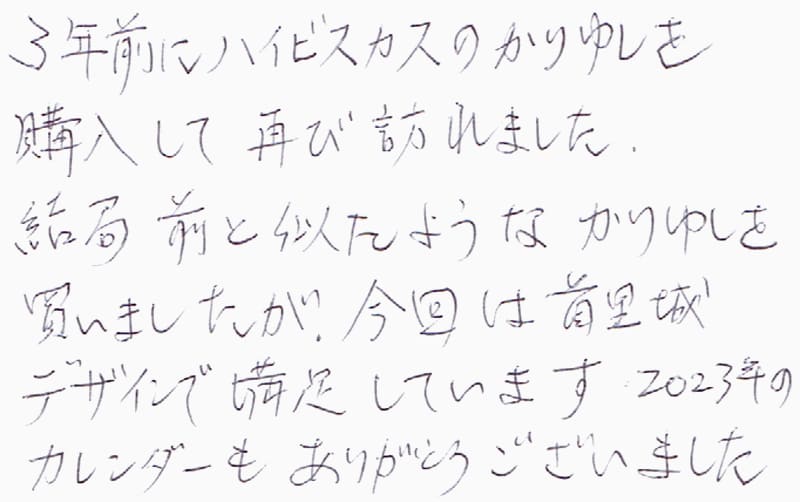 3年前にハイビスカスのかりゆしを
購入して 再び訪れました.
結局 前と似たような かりゆしを
買いましたが、今回は首里城
デザインで満足しています 2023年の
カレンダーも ありがとうございました